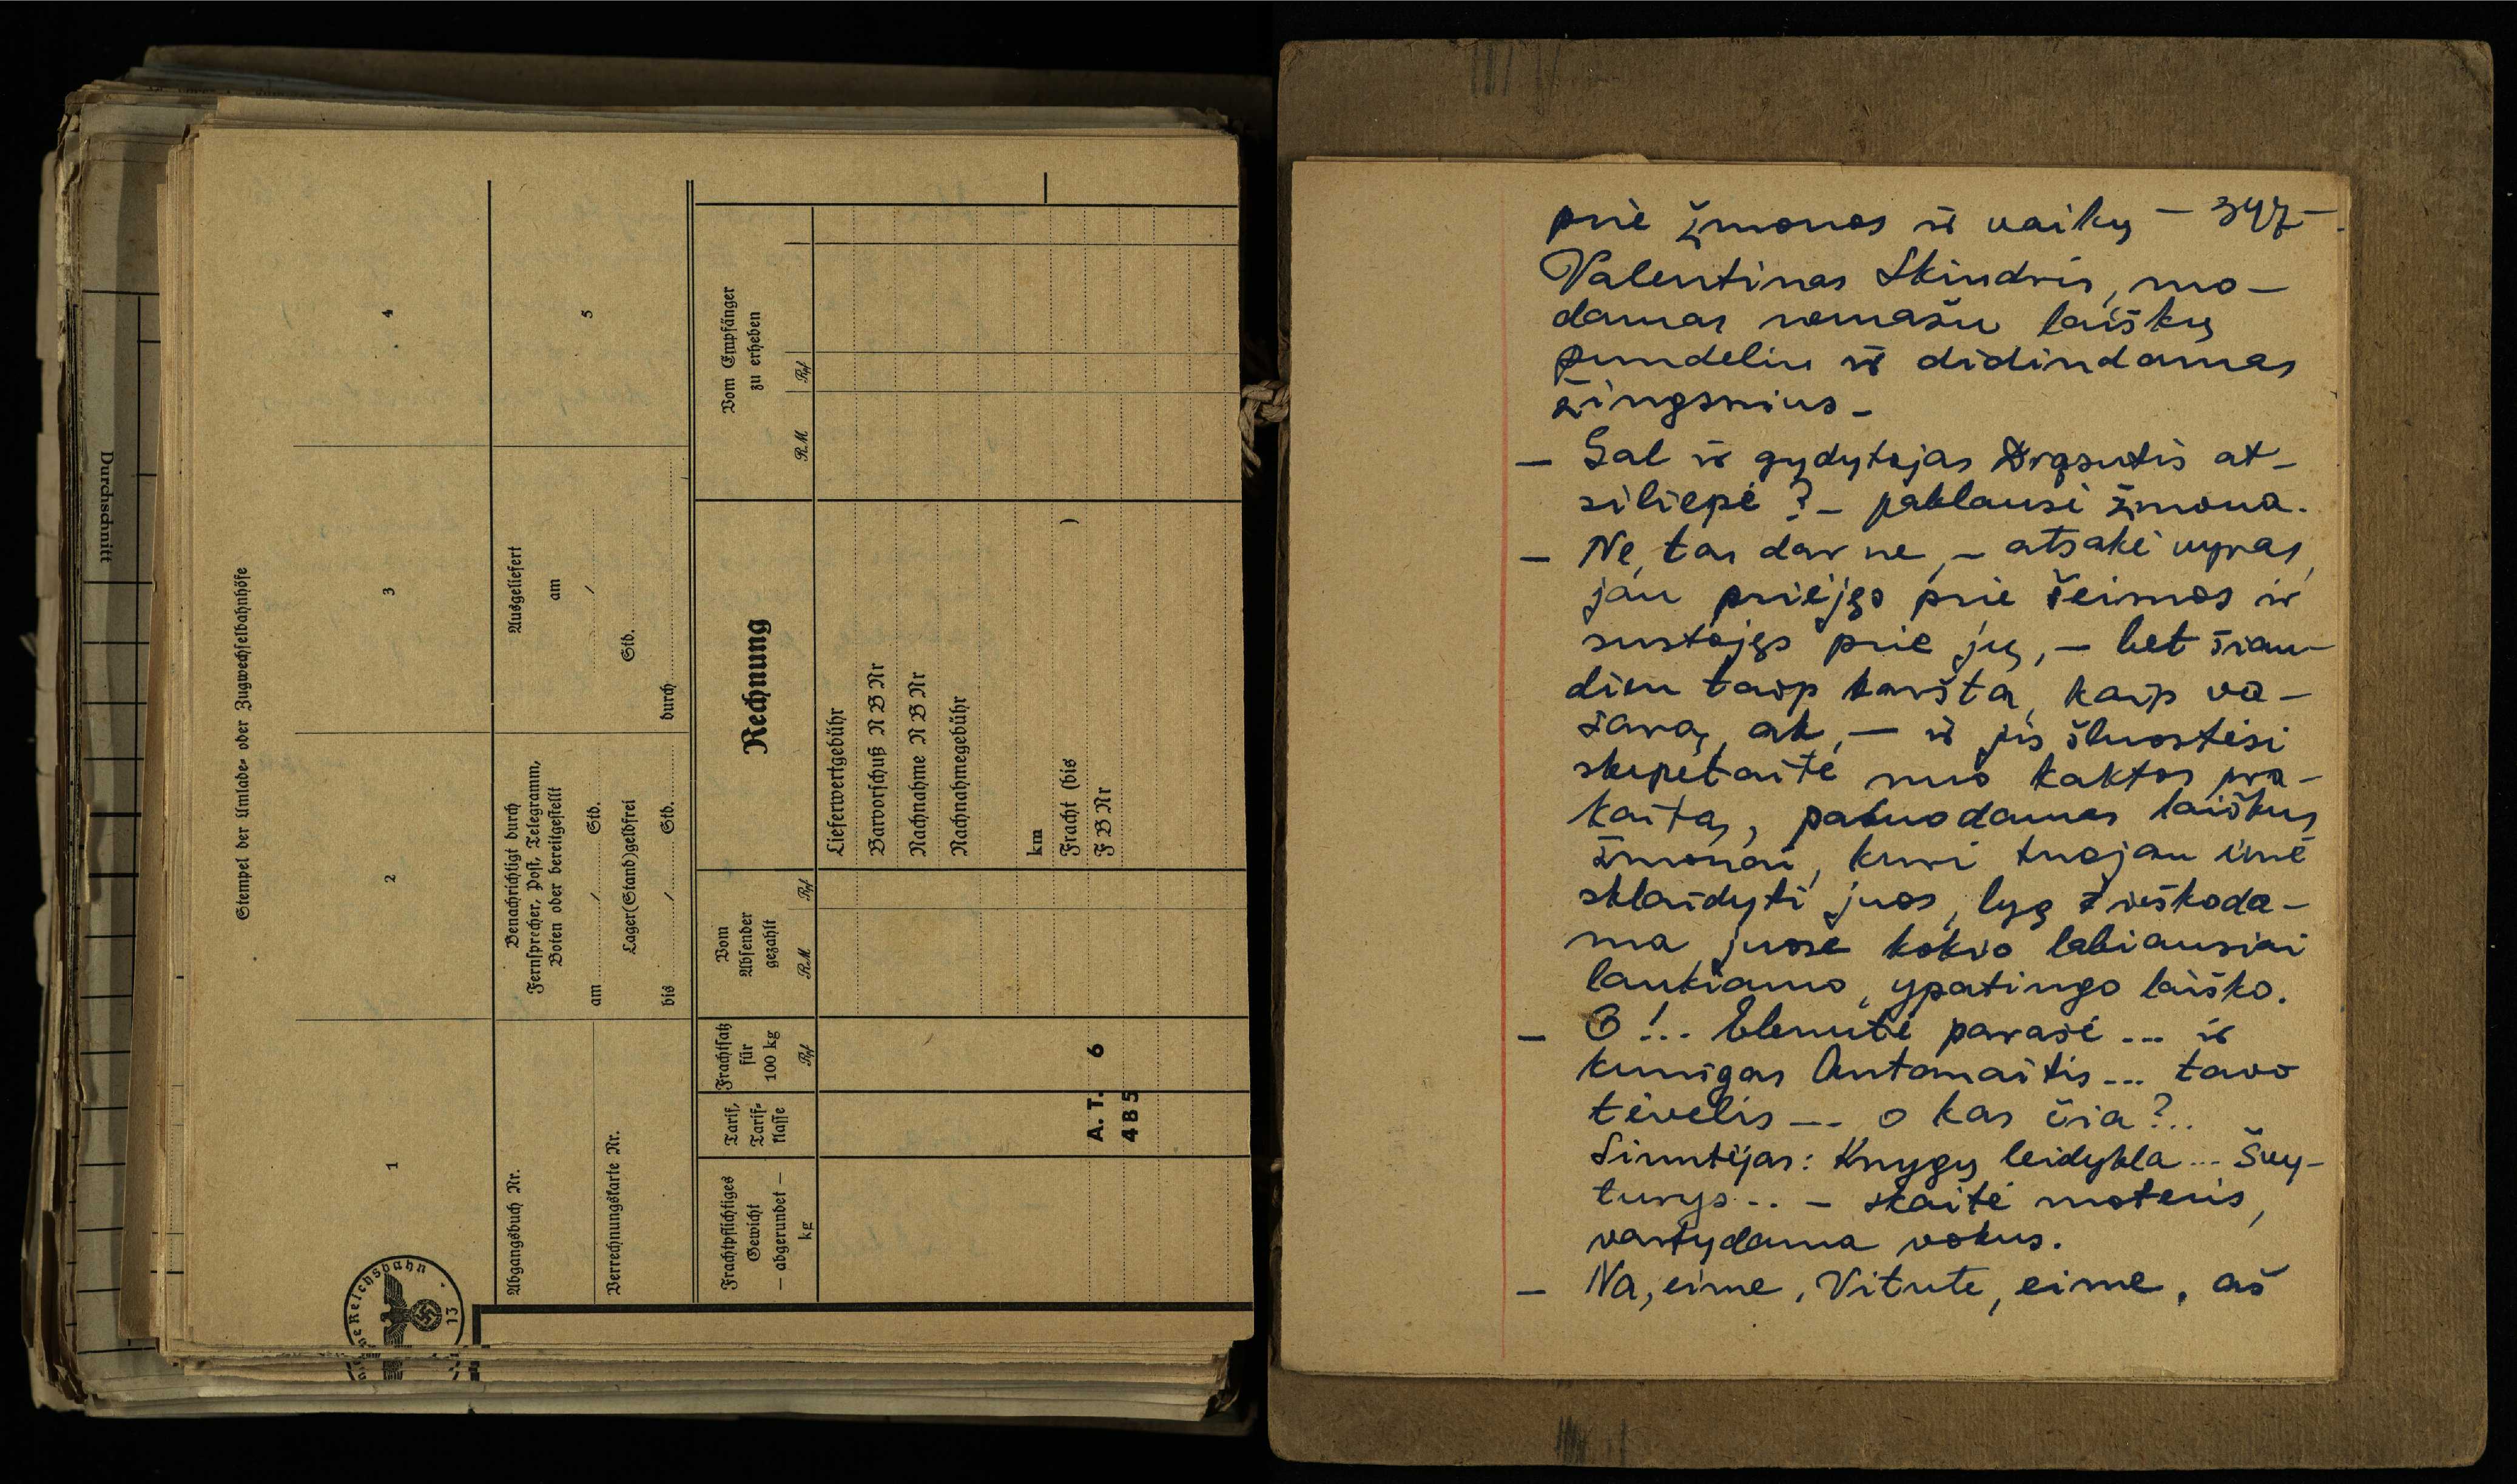 Durchschnitt
Stempel der Umlade- oder Zugwechselbahnhöfe
1
2
3
4
Abgangsbuch Nr.
Verrechnungskarte Nr.
Benachrichtigt durch
Fernsprecher, Post, Telegramm,
Boten oder bereitgestellt
am / Std.
Lager(Stand)geldfrei
bis / Std.
Ausgeliefert
am
/
Std.
durch
5
Frachtpflichtiges
Gewicht
— abgerundet —
kg
Tarif,
Tarif-
klasse
Frachtsatz
für
100 kg
Rpf
Vom
Absender
gezahlt
RM Rpf
Rechnung
Vom Empfänger
zu erheben
RM Rpf
Lieferwertgebühr
Barvorschuß N B Nr
Nachnahme N B Nr
Nachnahmegebühr
km
Fracht (bis )
F B Nr
A. T. 6
4 B 5
Reichsbahn
13
prie žmonos ir vaikų — 347 —
Valentinas Skindris, mo-
damas nemažu laiškų
pundeliu ir didindamas
žingsnius.
— Gal ir gydytojas Drąsutis at-
siliepė? — paklausė žmona.
— Ne, tas dar ne, — atsakė vyras,
jau priėjęs prie šeimos ir
sustojęs prie jų, — bet šian-
dien taip karšta, kaip va-
sarą, ak, — ir jis šluostėsi
skepetaite nuo kaktos pra-
kaitą, paduodamas laiškus
žmonai, kuri tuojau ėmė
sklaidyti juos, lyg ieškoda-
ma juose kokio labiausiai
laukiamo, ypatingo laiško.
— O!.. Elenutė parašė... ir
kunigas Antanaitis... tavo
tėvelis... o kas čia?..
Siuntėjas: Knygų leidykla... Švy-
turys... — skaitė moteris,
vartydama vokus.
— Na, eime, Vitute, eime, aš